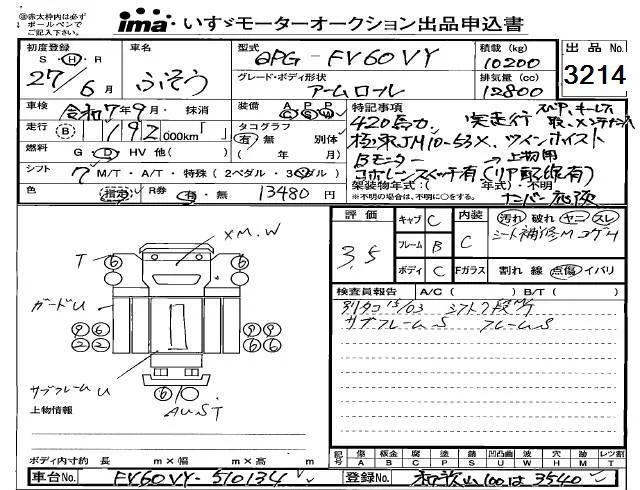 赤太枠内は必ず
ボールペンで
ご記入下さい。
ima いすゞモーターオークション出品申込書
初度登録
S・H・R
27/6月
車名
ふそう
型式
QPG-FV60VY
グレード・ボディ形状
アームロール
積載(kg)
10200
排気量(cc)
12800
出品No.
3214
車検 令和7年9月・ 抹消
走行 B 192 000km「 」
燃料 G・D・HV 他( )
シフト 7 M/T・A/T・特殊(2ペダル・3ペダル)
色 指定
R券 有・無 13480円
装備 A P P
C S W
タコグラフ
有・無 別体
( 年 月)
特記事項
420馬力 実走行 スペア、キーレス
取、メンテナンス
極東JM10-53X、ツインホイスト
Bモニター →上物用
コホレンスイッチ有(リア配線有)
架装物年式:( 年式)・不明
※不明の場合は、不明に○をする。
ナンバー応談
評価
3.5
キャブ C
フレーム B
ボディ C
内装 C
Fガラス S
汚れ 破れ ヤニ スレ
シート補修M コゲ4
割れ 線 点傷 イパリ
検査員報告 A/C( ) B/T( )
別タコ 15/03 シフト7段M/T
サブフレームS フレームS
XM.W
T 6 6
ガードU
9 6 9 9
2 2 6 6
サブフレームU
6
AUST
上物情報
ボディ内寸約 長 m×幅 m×高 m
記号 傷 A 板金 B 腐 C 塗 P 錆 S 凹凸曲 U 波 W 穴 H 跡 M レツ割 T
車台No. FV60VY-510134
登録No. 和歌山100は3540